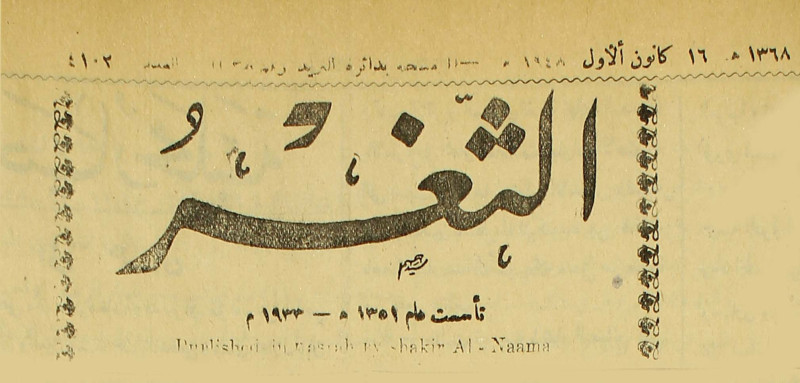 ١٣٦٨ ه ١٦ كانون ألاول ١٩٤٨ م مسجله بدائرة البريد العدد ٤١٠٢
الثَّغْرُ
تأسست عام ١٣٥١ ه — ١٩٣٣ م
Published in Basrah by Shakir Al - Naama